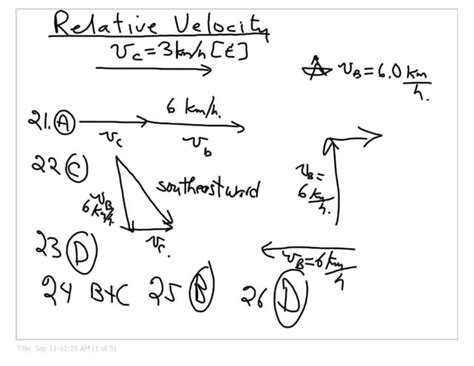 Relative Velocity
v_c = 3 km/h [E]
v_B = 6.0 km/h.
21. A
6 km/h.
v_c
v_b
22 C
v_B
6 km/h.
southeastward
v_c.
v_B =
6 km/h.
23 D
v_B = 6 km/h
24 B+C 25 B 26 D
Title: Sep 11-11:25 AM (1 of 5)